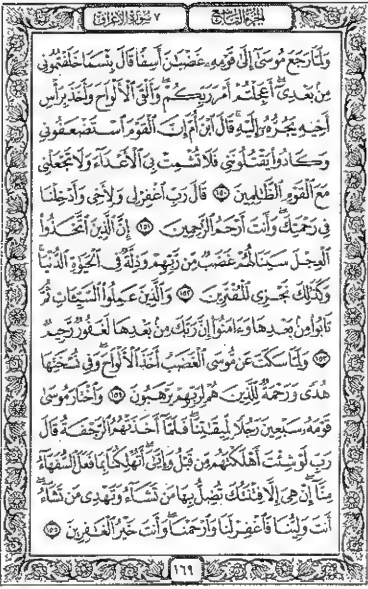 الجزء التاسع
٧ سورة الأعراف
وَلَمَّا رَجَعَ مُوسَىٰٓ إِلَىٰ قَوْمِهِۦ غَضْبَٰنَ أَسِفًا قَالَ بِئْسَمَا خَلَفْتُمُونِى
مِنۢ بَعْدِىٓ أَعَجِلْتُمْ أَمْرَ رَبِّكُمْ وَأَلْقَى ٱلْأَلْوَاحَ وَأَخَذَ بِرَأْسِ
أَخِيهِ يَجُرُّهُۥٓ إِلَيْهِ قَالَ ٱبْنَ أُمَّ إِنَّ ٱلْقَوْمَ ٱسْتَضْعَفُونِى
وَكَادُوا۟ يَقْتُلُونَنِى فَلَا تُشْمِتْ بِىَ ٱلْأَعْدَآءَ وَلَا تَجْعَلْنِى
مَعَ ٱلْقَوْمِ ٱلظَّٰلِمِينَ ١٥٠ قَالَ رَبِّ ٱغْفِرْ لِى وَلِأَخِى وَأَدْخِلْنَا
فِى رَحْمَتِكَ وَأَنتَ أَرْحَمُ ٱلرَّٰحِمِينَ ١٥١ إِنَّ ٱلَّذِينَ ٱتَّخَذُوا۟
ٱلْعِجْلَ سَيَنَالُهُمْ غَضَبٌ مِّن رَّبِّهِمْ وَذِلَّةٌ فِى ٱلْحَيَوٰةِ ٱلدُّنْيَا
وَكَذَٰلِكَ نَجْزِى ٱلْمُفْتَرِينَ ١٥٢ وَٱلَّذِينَ عَمِلُوا۟ ٱلسَّيِّـَٔاتِ ثُمَّ
تَابُوا۟ مِنۢ بَعْدِهَا وَءَامَنُوٓا۟ إِنَّ رَبَّكَ مِنۢ بَعْدِهَا لَغَفُورٌ رَّحِيمٌ
١٥٣ وَلَمَّا سَكَتَ عَن مُّوسَى ٱلْغَضَبُ أَخَذَ ٱلْأَلْوَاحَ وَفِى نُسْخَتِهَا
هُدًى وَرَحْمَةٌ لِّلَّذِينَ هُمْ لِرَبِّهِمْ يَرْهَبُونَ ١٥٤ وَٱخْتَارَ مُوسَىٰ
قَوْمَهُۥ سَبْعِينَ رَجُلًا لِّمِيقَٰتِنَا فَلَمَّآ أَخَذَتْهُمُ ٱلرَّجْفَةُ قَالَ
رَبِّ لَوْ شِئْتَ أَهْلَكْتَهُم مِّن قَبْلُ وَإِيَّٰىَ أَتُهْلِكُنَا بِمَا فَعَلَ ٱلسُّفَهَآءُ
مِنَّآ إِنْ هِىَ إِلَّا فِتْنَتُكَ تُضِلُّ بِهَا مَن تَشَآءُ وَتَهْدِى مَن تَشَآءُ
أَنتَ وَلِيُّنَا فَٱغْفِرْ لَنَا وَٱرْحَمْنَا وَأَنتَ خَيْرُ ٱلْغَٰفِرِينَ ١٥٥
١٦٩